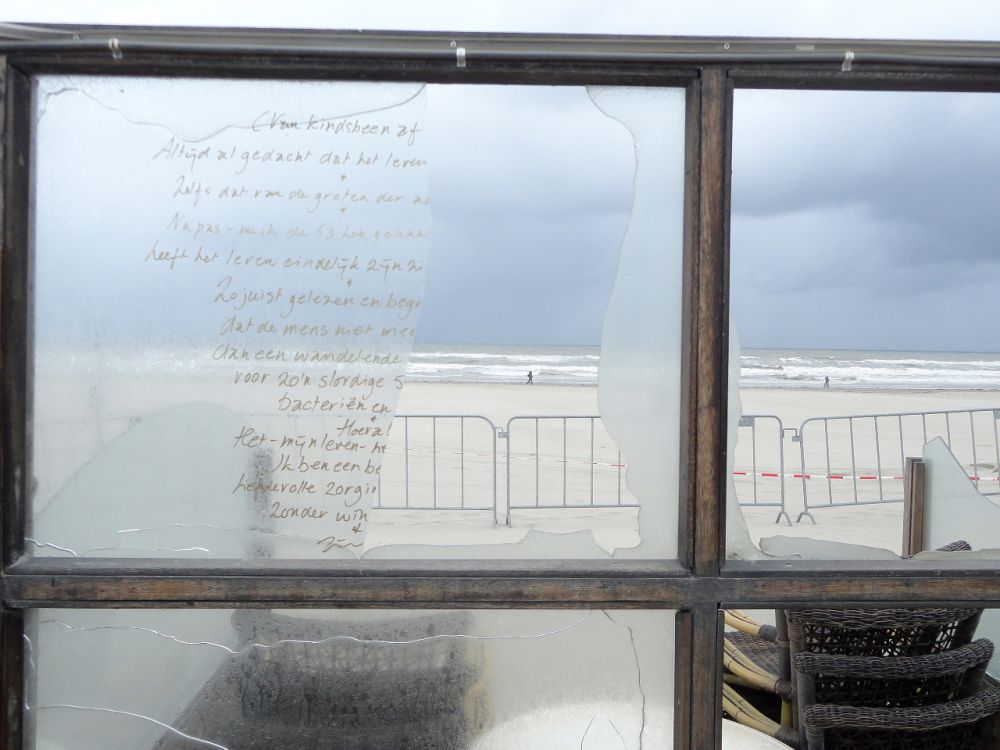 (Van kindsbeen af
Altijd al gedacht dat het leven
Zelfs dat van de groten der
Napas - de 53 heb
heeft het leven eindelijk zijn zi
Zojuist gelezen en begr
dat de mens niet mee
dan een wandelende
voor zo'n slordige 5
bacteriën en
Hoera!
Het - mijn leven - he
Ik ben een be
zorgi
zonder win